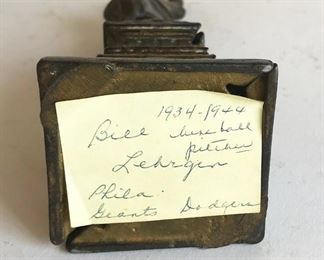 1934-1944
Bill baseball
pitcher
Lehrgen
Phila.
Giants Dodgers